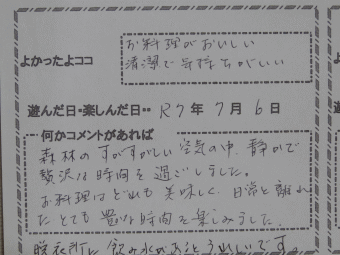 よかったよココ
お料理がおいしい
清潔で気持ちがいい
遊んだ日・楽しんだ日・・ R7年 7月 6日
何かコメントがあれば
森林のすがすがしい空気の中、静かで
贅沢な時間を過ごしました。
お料理はどれも美味しく、日常と離れ
たとても豊な時間を楽しみました。
脱衣所に飲み水があるとうれしいです。